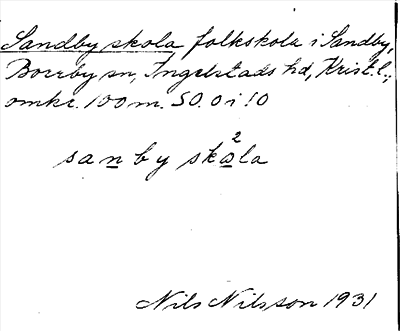 Sandby skola folkskola i Sandby,
Borrby sn, Ingelstads hd, Krist. l.,
omkr. 100 m. SO. om 10
sanby skola
2
Nils Nilsson 1931